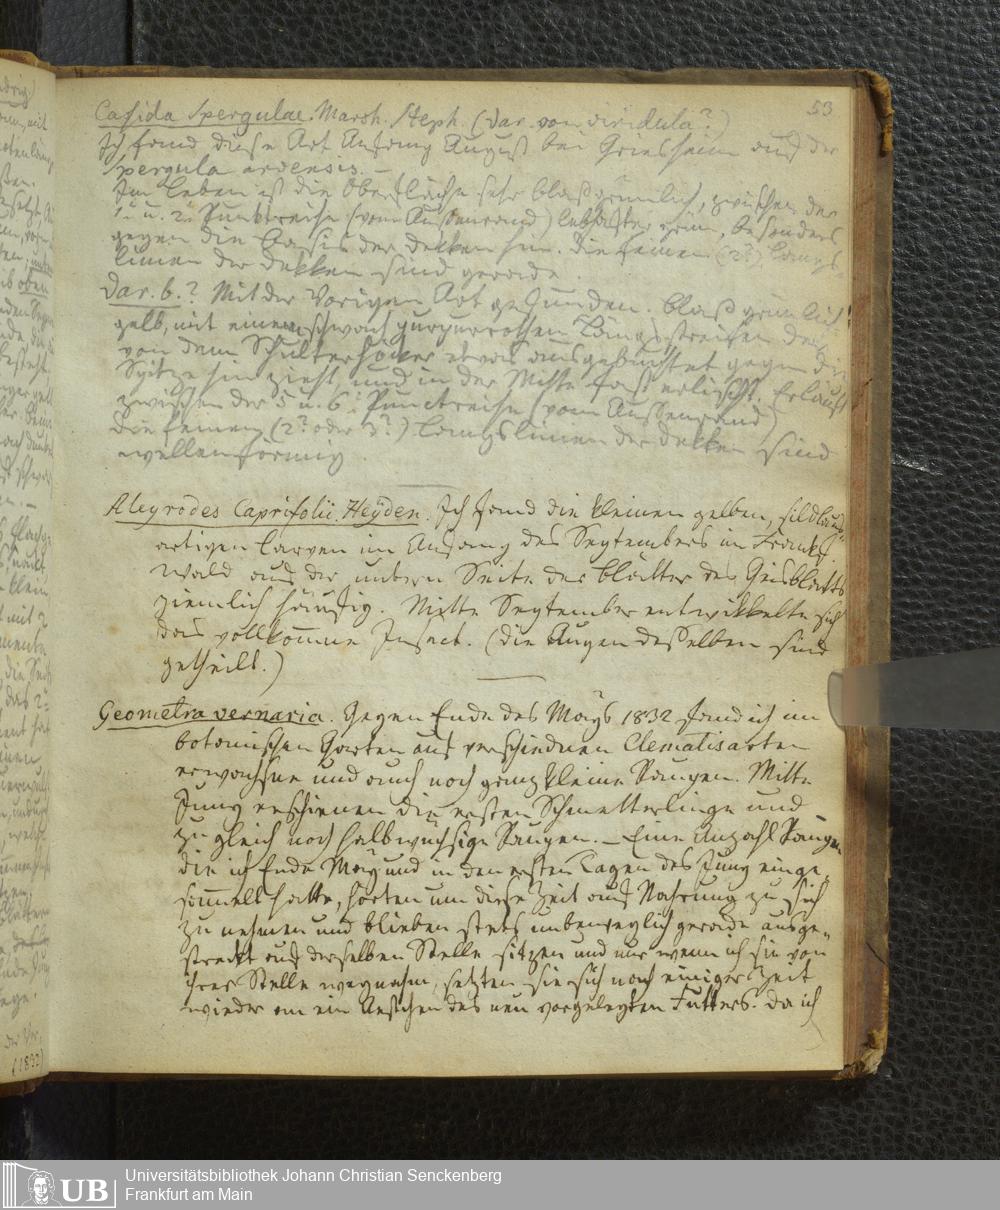 53
Cassida Spergulae. Marsh. Steph. (Var. von viridula?)
Ich fand diese Art Anfang August bei Griesheim auf der
Spergula arvensis. –
Im Leben ist die Oberfläche sehr blaßgrünlich, zwischen der
1. u. 2. Punktreihe (vom Außenrand) lebhafter grün, besonders
gegen die Basis der Dekken hin. Die feinen (2?) Längs-
linien der Dekken sind gerade.
Var. b.? Mit der Vorigen Art gefunden. Blaß grünlich
gelb, mit einem schwach purpurrothen Längsstreifen der
von dem Schulterhöcker etwas ausgebuchtet gegen die
Spitze hin zieht, und in der Mitte fast erlischt. Er läuft
zwischen der 5 u. 6. Punctreihe (vom Außenrand)
Die feinen (2? oder 3?) Längslinien der Dekken sind
wellenförmig.
Aleyrodes Caprifolii. Heyden. Ich fand die kleinen gelben, schildlaus-
artigen Larven im Anfang des Septembers im Frankf.
Wald auf der untern Seite der Blätter des Geisblatts
ziemlich häufig. Mitte September entwikkelte sich
das vollkommne Insect. (Die Augen desselben sind
getheilt.)
Geometra vernaria. Gegen Ende des Mays 1832 fand ich im
botanischen Garten auf verschiednen Clematisarten
erwachsne und auch noch ganz kleine Raupen. Mitte
Juny erschienen die ersten Schmetterlinge und
zugleich noch halbwüchsige Raupen. – Eine Anzahl Raupen
die ich Ende May und in den ersten Tagen des Juny einge-
sammelt hatte, hörten um diese Zeit auf Nahrung zu sich
zu nehmen und blieben stets unbeweglich gerade ausge-
streckt auf derselben Stelle sitzen und nur wenn ich sie von
ihrer Stelle wegnahm, setzten sie sich nach einiger Zeit
wieder an ein Aestchen des neu vorgelegten Futters. Da ich
(1832)
UB
Universitätsbibliothek Johann Christian Senckenberg
Frankfurt am Main